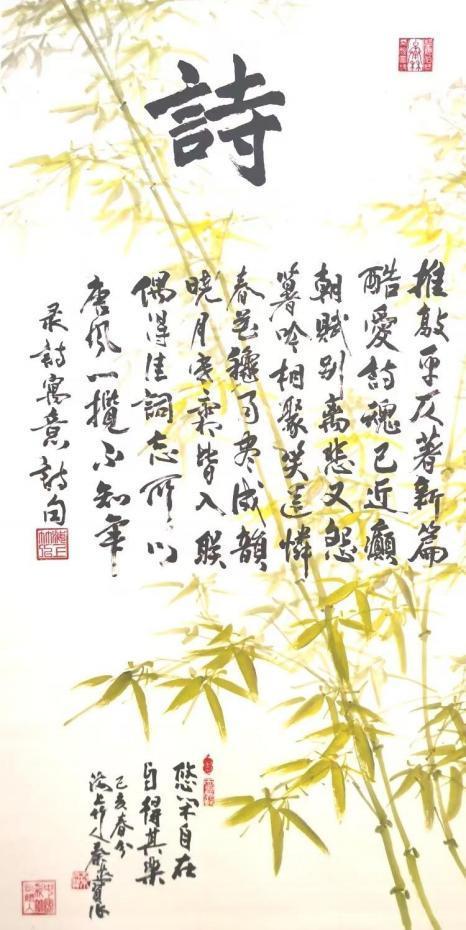 詩
推敲平仄著新篇
酷愛詩魂已近癲
朝賦別離悲又怨
暮吟相聚笑還憐
春花穐雨尽成韻
曉月寒霜皆入联
偶得佳詞忘所以
唐风一攬不知年
录詩寓意詩句
悠闲自在
自得其樂
己亥春分
海上竹人秦